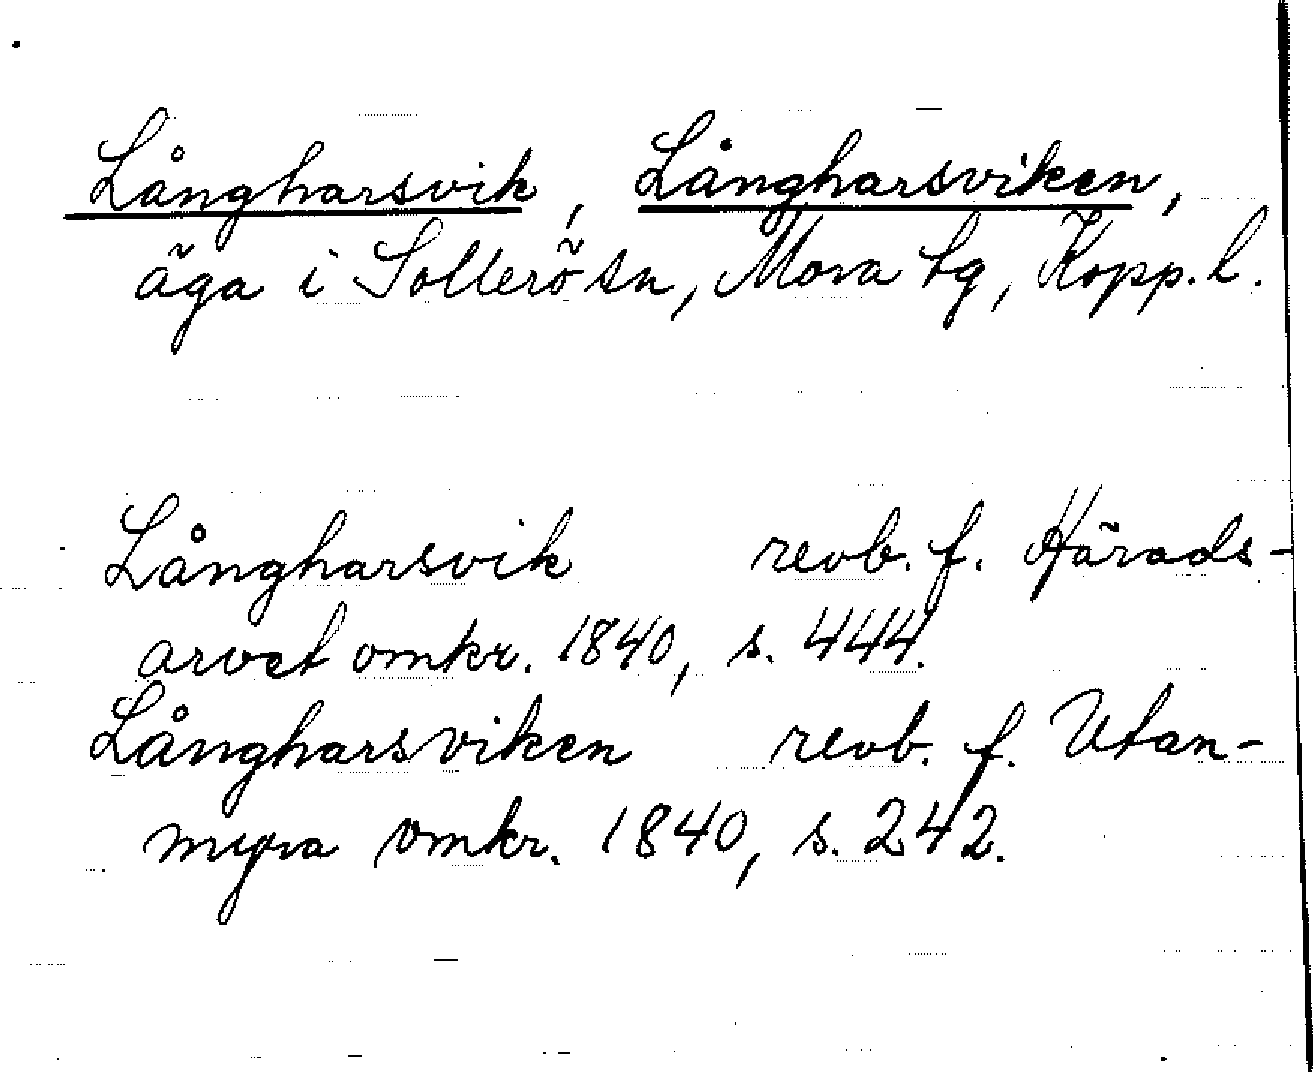 Långharsvik, Långharsviken,
äga i Sollerö sn, Mora tg, Kopp. l.
Långharsvik revb. f. Härads-
arvet omkr. 1840, s. 444.
Långharsviken revb. f. Utan-
myra omkr. 1840, s. 242.